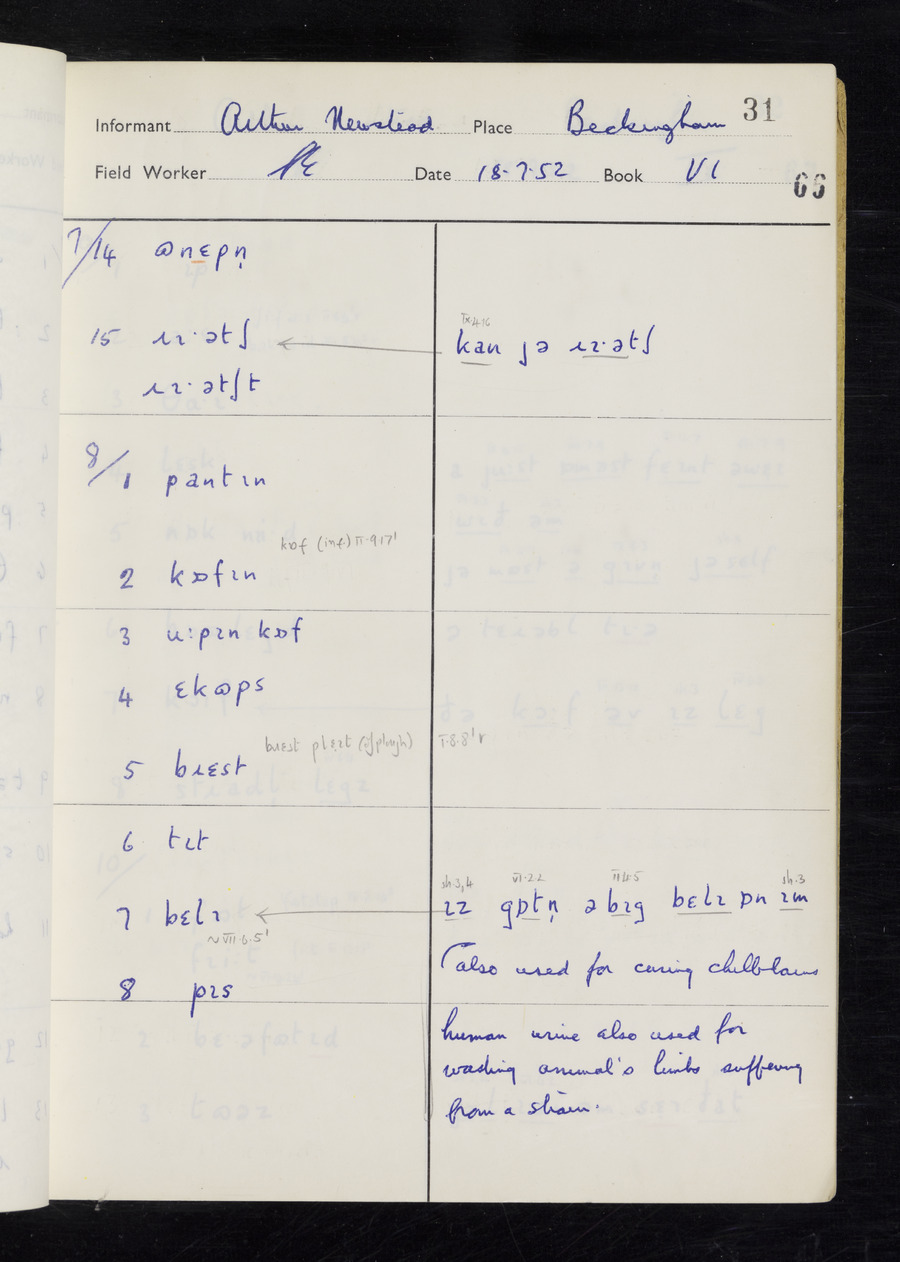 31
Informant Arthur Newstead Place Beckingham
Field Worker PE Date 18.7.52 Book VI
66
7/14 ɷnɛpn̩
Ix.4.16
15 ɪɪ·ətʃ kan jə ɪɪ·ətʃ
ɪɪ·ətʃt
8/1 pantɪn
kɒf (inf.) II.9.17¹
2 kɒfɪn
3 u:pɪn kɒf
4 ɛkɷps
bɹɛst plɛɪt (of plough) I.8.8¹r
5 bɹɛst
6 tɪt
sh.3,4 VI.22 sh.3
7 bɛlɪ ɪz gɒtn̩ ə bɪg bɛlɪ ɒn ɪm
~VII.6.5¹
(also used for curing chilblains
8 pɪs
human urine also used for
washing animal's limbs suffering
from a strain.